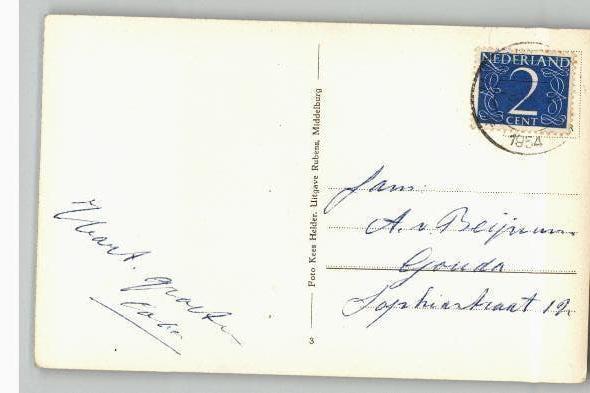 NEDERLAND
2
CENT
1954
Fam:
A. v. Beijnum
Gouda
Sophiastraat 19.
Hart. groeten
Foto Kees Helder. Uitgave Rubens, Middelburg
3